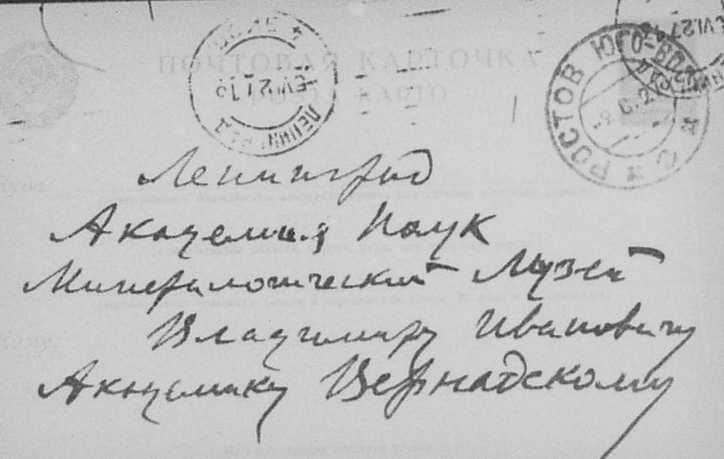 ПОЧТОВАЯ КАРТОЧКА
POŜTA KARTO
ЛЕНИНГРАД
РОСТОВ ЮГО-ВОС
Ленинград
Академия Наук
Минералогический Музей
Владимиру Ивановичу
Академику Вернадскому